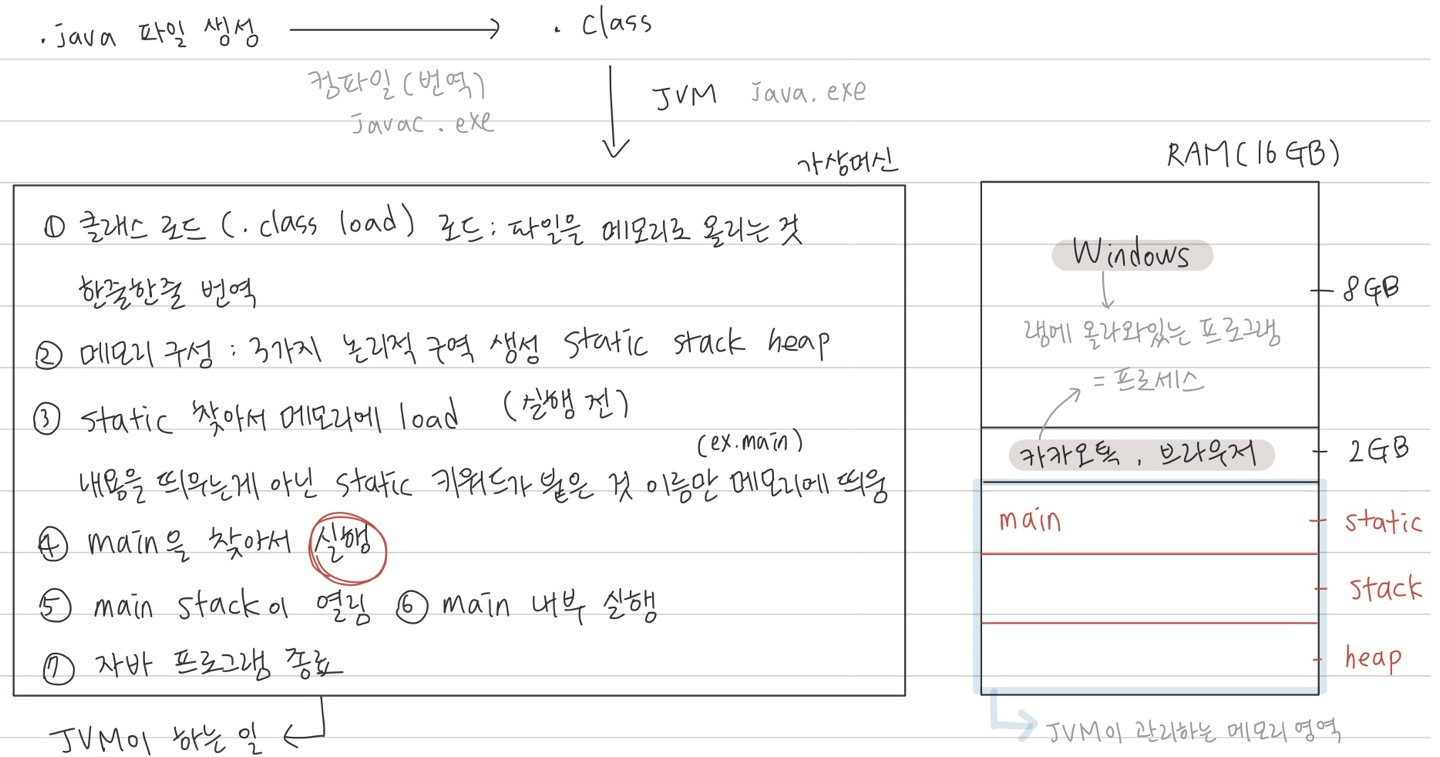 .java 파일 생성
. class
컴파일(번역)
javac.exe
JVM java.exe
가상머신
① 클래스 로드 (.class load) 로드 : 파일을 메모리로 올리는 것
한줄한줄 번역
② 메모리 구성 : 3가지 논리적 구역 생성 static stack heap
③ static 찾아서 메모리에 load (실행 전)
(ex.main)
내용을 띄우는게 아닌 static 키워드가 붙은 것 이름만 메모리에 띄움
④ main을 찾아서 실행
⑤ main stack이 열림 ⑥ main 내부 실행
⑦ 자바 프로그램 종료
JVM이 하는 일
RAM(16GB)
Windows
8GB
램에 올라와있는 프로그램
= 프로세스
카카오톡, 브라우저
2GB
main
static
stack
heap
JVM이 관리하는 메모리 영역